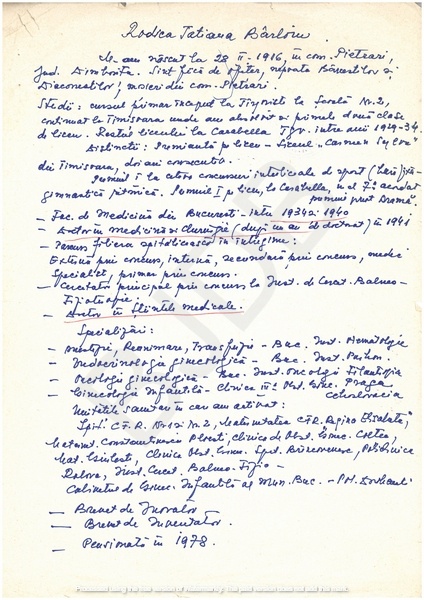 Rodica Tatiana Bârloiu
M-am născut la 28 II. 1916, în com. Pietrari,
jud. Dîmbovița. Sînt fiică de ofițer, nepoata Bărneștilor și
Diaconeștilor, moșieri din com. Pietrari.
Studii: cursul primar început la Tîrgoviște la Școala Nr. 2,
continuat la Timișoara unde am absolvit și primele două clase
de liceu. Restul liceului la Carabella Tgv. între anii 1929-34.
Distincții: Premiantă pe liceu - Liceul "Carmen Sylva"
din Timișoara, doi ani consecutiv.
Premiul I la cele concursuri interșcolare de sport
gimnastică ritmică. Premiul I pe liceu, la Carabella,
premiul
- Fac. de Medicină din București - între 1934 și 1940
- Doctor în medicină și chirurgie (după un an de doctorat) în 1941
- Parcurs filiera spitalicească în întregime:
Externă prin concurs, internă, secundară prin concurs, medic
Specialist, primar prin concurs.
- Cercetător principal prin concurs la Inst. de Cercet. Balneo-
Fizioterapie.
- Doctor în Științele medicale.
Specializări:
- Anestezie, Reanimare, Transfuzii - Buc. Inst. Hematologie
- Endocrinologie ginecologică - Buc. Inst. Parhon.
- Oncologie ginecologică - Buc. Inst. Oncologic Filantropia
- Ginecologie Infantilă - Clinica III-a Obst. Ginec. Praga
Cehoslovacia
Unitățile sanitare în care am activat:
Spit. C.F.R. Nr. 1 și Nr. 2, Maternitatea C.F.R. Regina Elisabeta,
Matern. Constantinescu Ploești, Clinica de Obst. Ginec. Colțea,
Mat. Giulești, Clinica Obst. Ginec. Spit. Brîncovenesc, Policlinica
Inst. Cercet. Balneo-Fizio -
Cabinetul de Ginec. Infantilă al Mun. Buc. -
- Brevet de Inovator
- Brevet de Inventator.
- Pensionată în 1978.